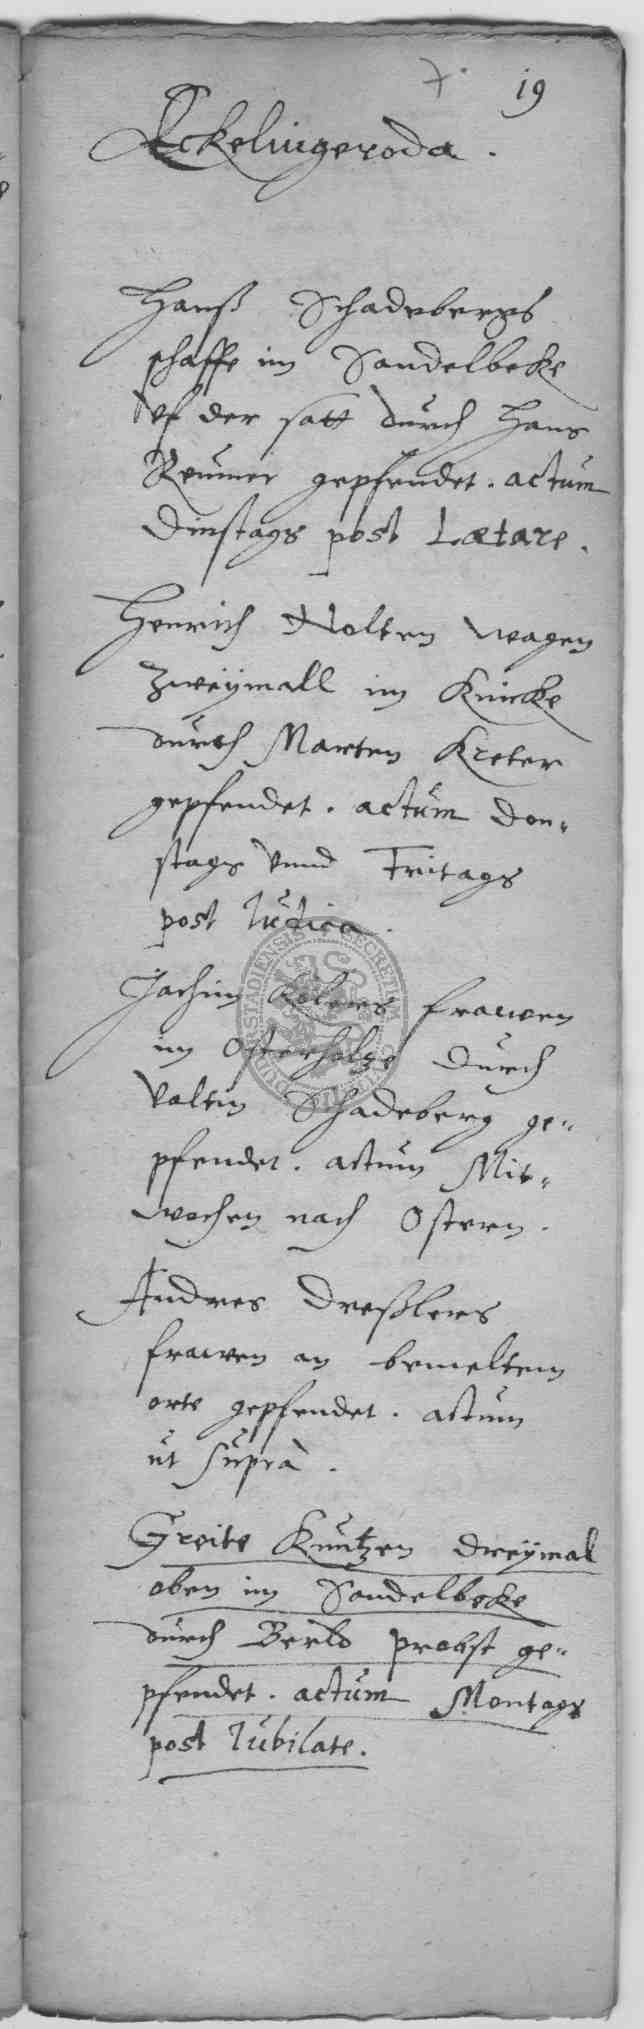 7. 19
Eckelingeroda.
Hanß Schadebergs
schaffe im Sandelbeke
vf der satt durch Hans
Reümer gepfendet. actum
Dinstags post Lætare.
Henrich Nolten wagen
Zweÿmall im Knicke
durch Marten Kreter
gepfendet. actum Don-
stags vnnd Freitags
post Judica.
Jochim frawen
im Osterholtze durch
Valtin Schadeberg ge-
pfendet. actum Mit-
wochen nach Ostern.
Andres Dreßlers
frawen an bemeltem
orte gepfendet. actum
ut suprà.
Greite Kuntzen dreÿmal
oben im Sandelbeke
durch probst ge-
pfendet. actum Montags
post Jubilate.